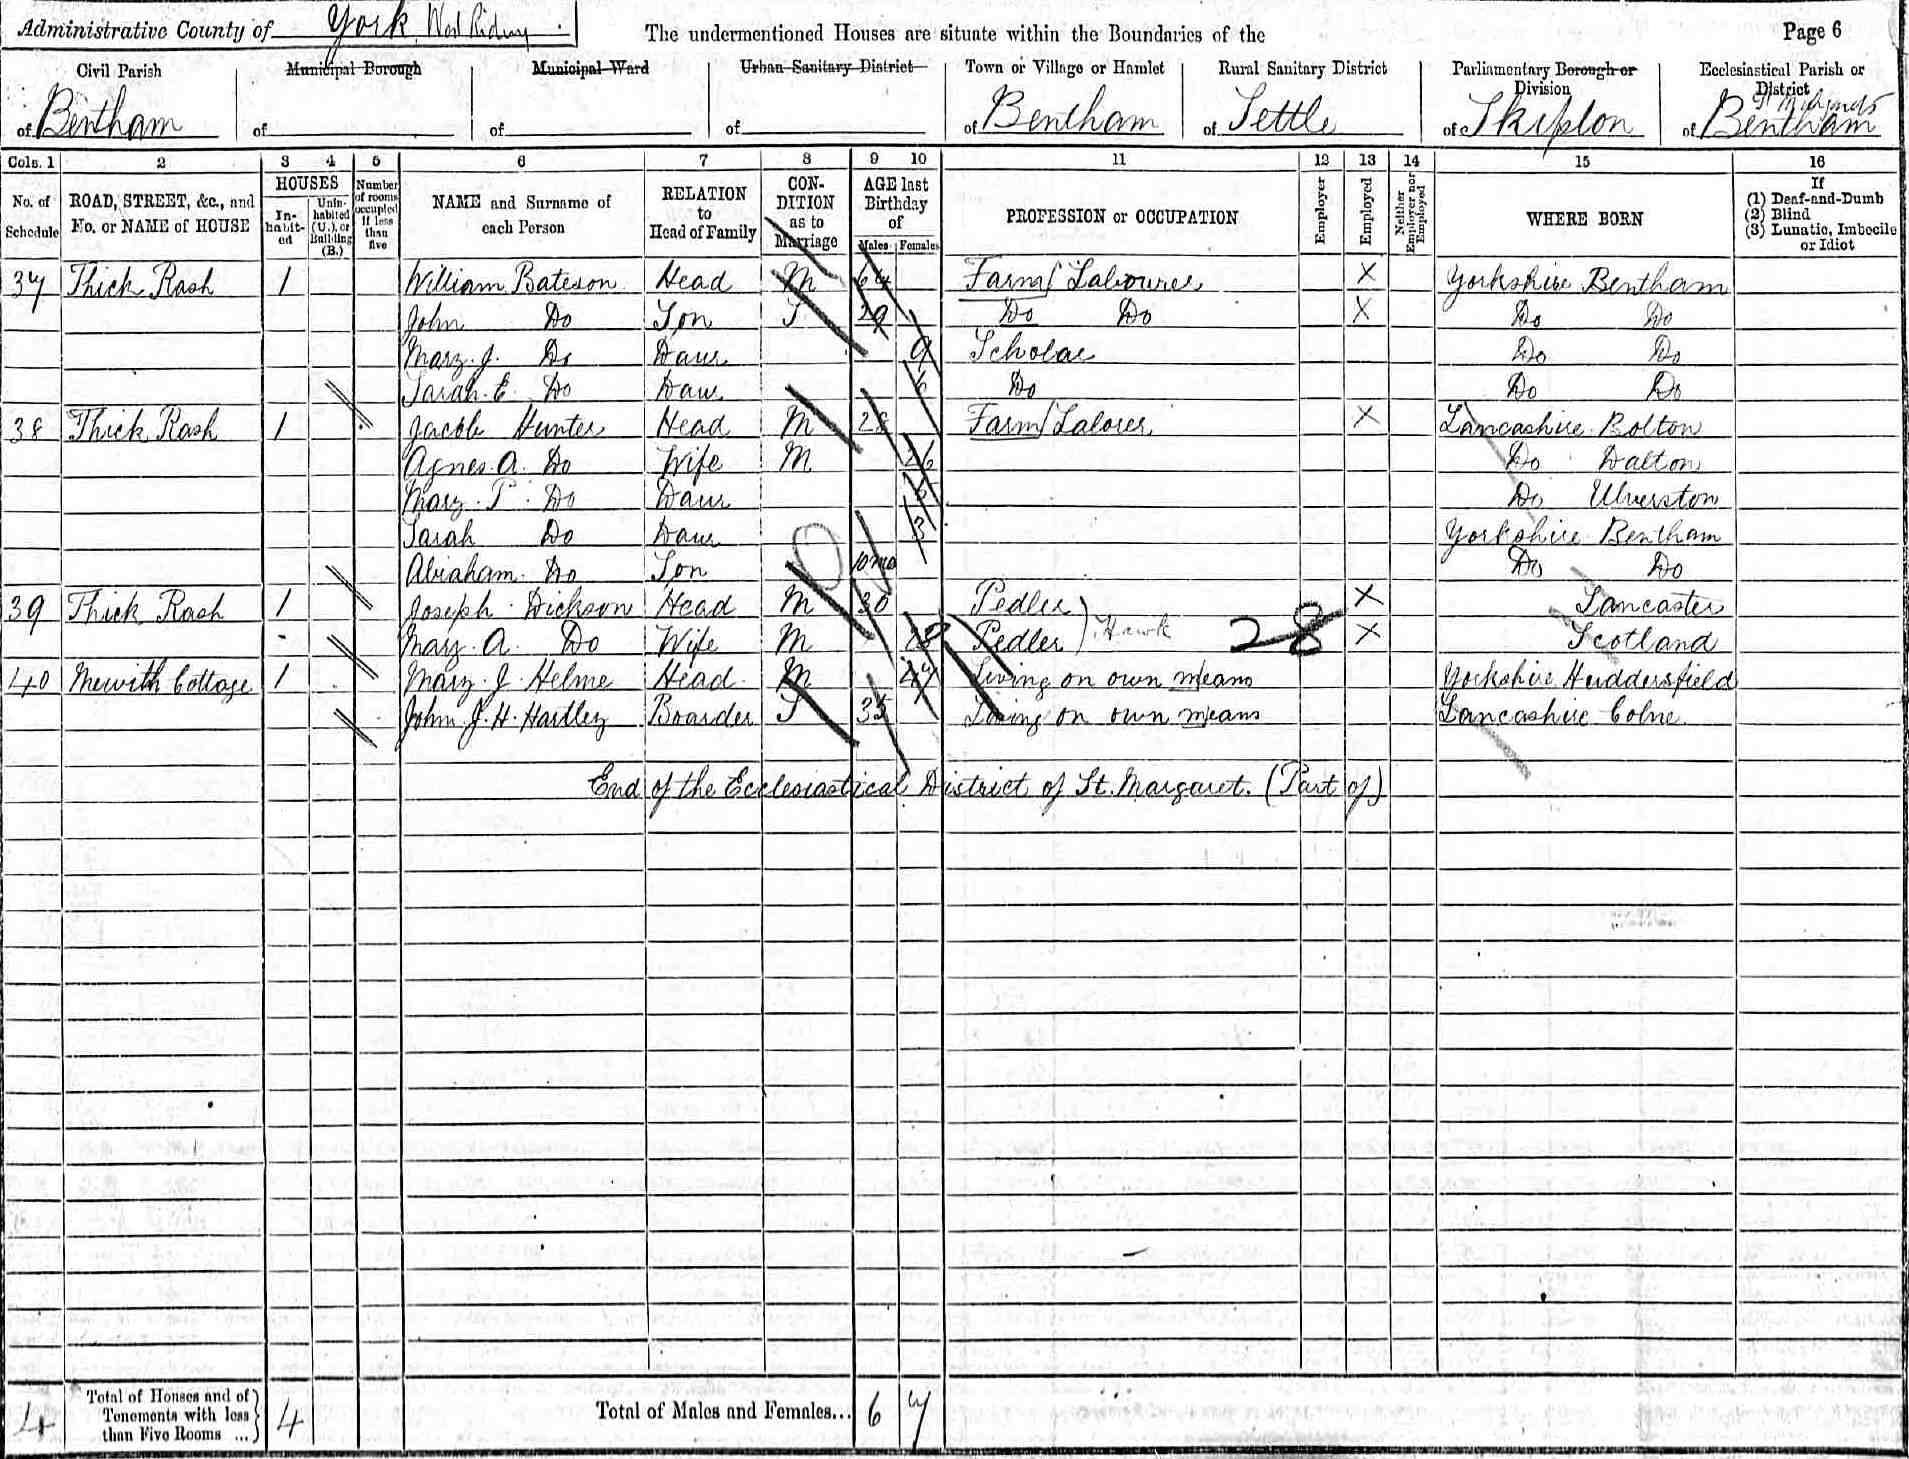 Administrative County of York West Riding
The undermentioned Houses are situate within the Boundaries of the
Page 6
Civil Parish
of Bentham
Municipal Borough
of
Municipal Ward
of
Urban Sanitary District
of
Town or Village or Hamlet
of Bentham
Rural Sanitary District
of Settle
Parliamentary Borough or Division
of Skipton
Ecclesiastical Parish or District
of Bentham
Cols. 1 2 3 4 5 6 7 8 9 10 11 12 13 14 15 16
No. of Schedule
ROAD, STREET, &c., and No. or NAME of HOUSE
HOUSES
In-habit-ed
Unin-habited (U.), or Building (B.)
Number of rooms occupied if less than five
NAME and Surname of each Person
RELATION to Head of Family
CON-DITION as to Marriage
AGE last Birthday of
Males Females
PROFESSION or OCCUPATION
Employer
Employed
Neither Employer nor Employed
WHERE BORN
If
(1) Deaf-and-Dumb
(2) Blind
(3) Lunatic, Imbecile or Idiot
37 Thick Rash 1 William Bateson Head M 64 Farm Labourer X Yorkshire Bentham
John Do Son S 29 Do Do X Do Do
Mary. J. Do Daur 9 Scholar Do Do
Sarah. E. Do Daur 6 Do Do Do
38 Thick Rash 1 Jacob Hunter Head M 28 Farm Laborer X Lancashire Bolton
Agnes. A. Do Wife M 26 Do Dalton
Mary. P. Do Daur 6 Do Ulverston
Sarah Do Daur 3 Yorkshire Bentham
Abraham Do Son 10 mo Do Do
39 Thick Rash 1 Joseph Dickson Head M 30 Pedler X Lancaster
Mary. A. Do Wife M Pedler Hawk 28 X Scotland
40 Mewith Cottage 1 Mary. J. Helme Head M 47 Living on own means Yorkshire Huddersfield
John. J. H. Hartley Boarder S 35 Living on own means Lancashire Colne
End of the Ecclesiastical District of St. Margaret. (Part of)
4 Total of Houses and of Tenements with less than Five Rooms ... 4 Total of Males and Females... 6 7